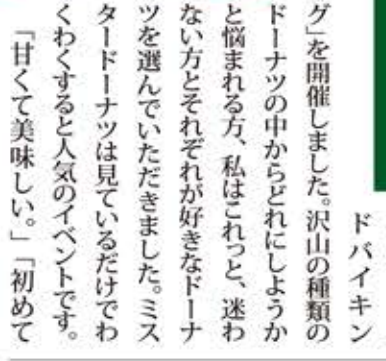 ドバイキン
グ」を開催しました。沢山の種類の
ドーナツの中からどれにしようか
と悩まれる方、私はこれっと、迷わ
ない方とそれぞれが好きなドーナ
ツを選んでいただきました。ミス
タードーナツは見ているだけでわ
くわくすると人気のイベントです。
「甘くて美味しい。」「初めて